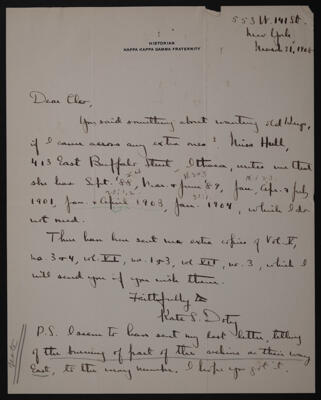 553 W. 141 St.
New York
March 21, 190
HISTORIAN
KAPPA KAPPA GAMMA FRATERNITY
Dear Cleo,
You said something about wanting old Keys,
if I came across any extra ones? Miss Hull,
413 East Buffalo Street, Ithaca, writes me that
she has Sept. '88, Mar. & June '89, Jan., Apr. & July,
1901, Jan. & April 1903, Jan. 1904, which I do
not need.
There have been sent me extra copies of Vol. V,
no. 3 & 4, vol. VI, no. 1 & 3, vol. VII, no. 3, which I
will send you if you wish them.
Faithfully
Kate S. Doty
P.S. I seem to have sent my last letter, telling
of the burning of part of the archives on their way
East, to the wrong number. I hope you got it.